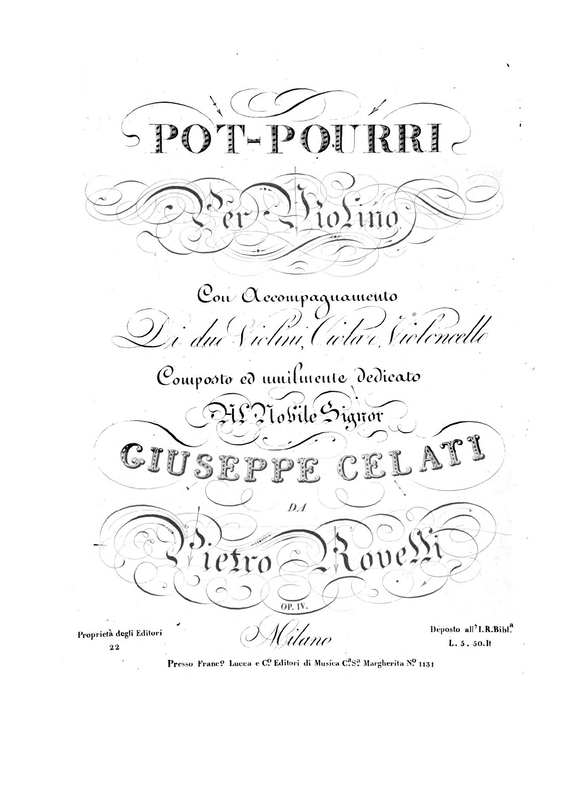 POT-POURRI
Per Violino
Con Accompagnamento
Di due Violini, Viola e Violoncello
Composto ed umilmente dedicato
Al Nobile Signor
GIUSEPPE CELATI
DA
Pietro Rovelli
OP. IV.
Proprietà degli Editori
22
Milano
Deposto all'I.R.Bibl.ª
L. 5. 50.It
Presso Franc.º Lucca e C.º Editori di Musica C.ª S.ª Margherita N.º 1131